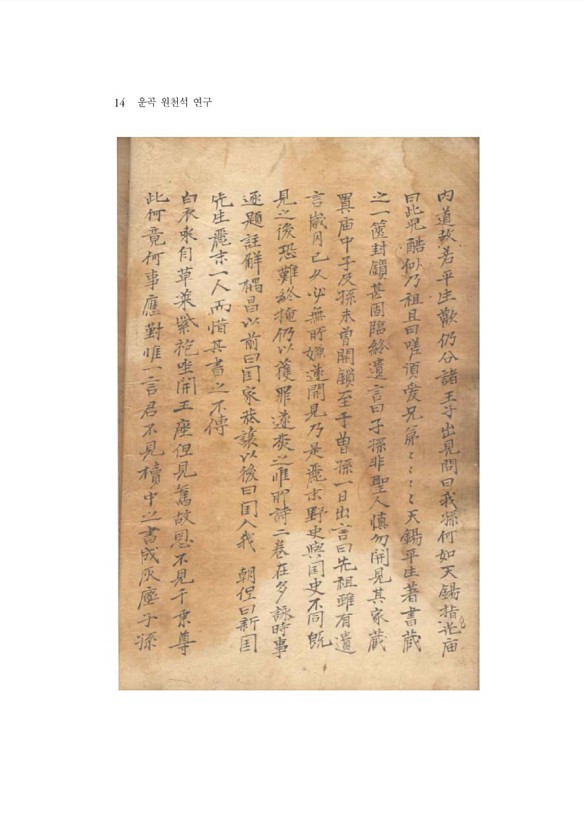 14 운곡 원천석 연구
內道故若平生歡仍分諸王子出見問曰我孫何如天錫指光庙
曰此児酷似乃祖且曰嗟須愛兄弟〻〻〻〻天錫平生著書藏
之一篋封鎖甚固臨終遺言曰子孫非聖人慎勿開見其家藏
置庙中子及孫未曽開鎖至于曽孫一日出言曰先祖雖有遺
言歲月已久必無所嫌遂開見乃是麗末野史與囯史不同旣
見之後恐難終掩仍以獲罪遂焚之惟所詩二卷在多詠時事
逐題註解禑昌以前曰囯家恭讓以後曰囯入我 朝但曰新囯
先生麗末一人而惜其書之不傳
白衣來自草萊紫袍坐開王座但見舊故恩不見千乘尊
此何竟何事應對惟一言君不見櫝中之書成灰塵子孫